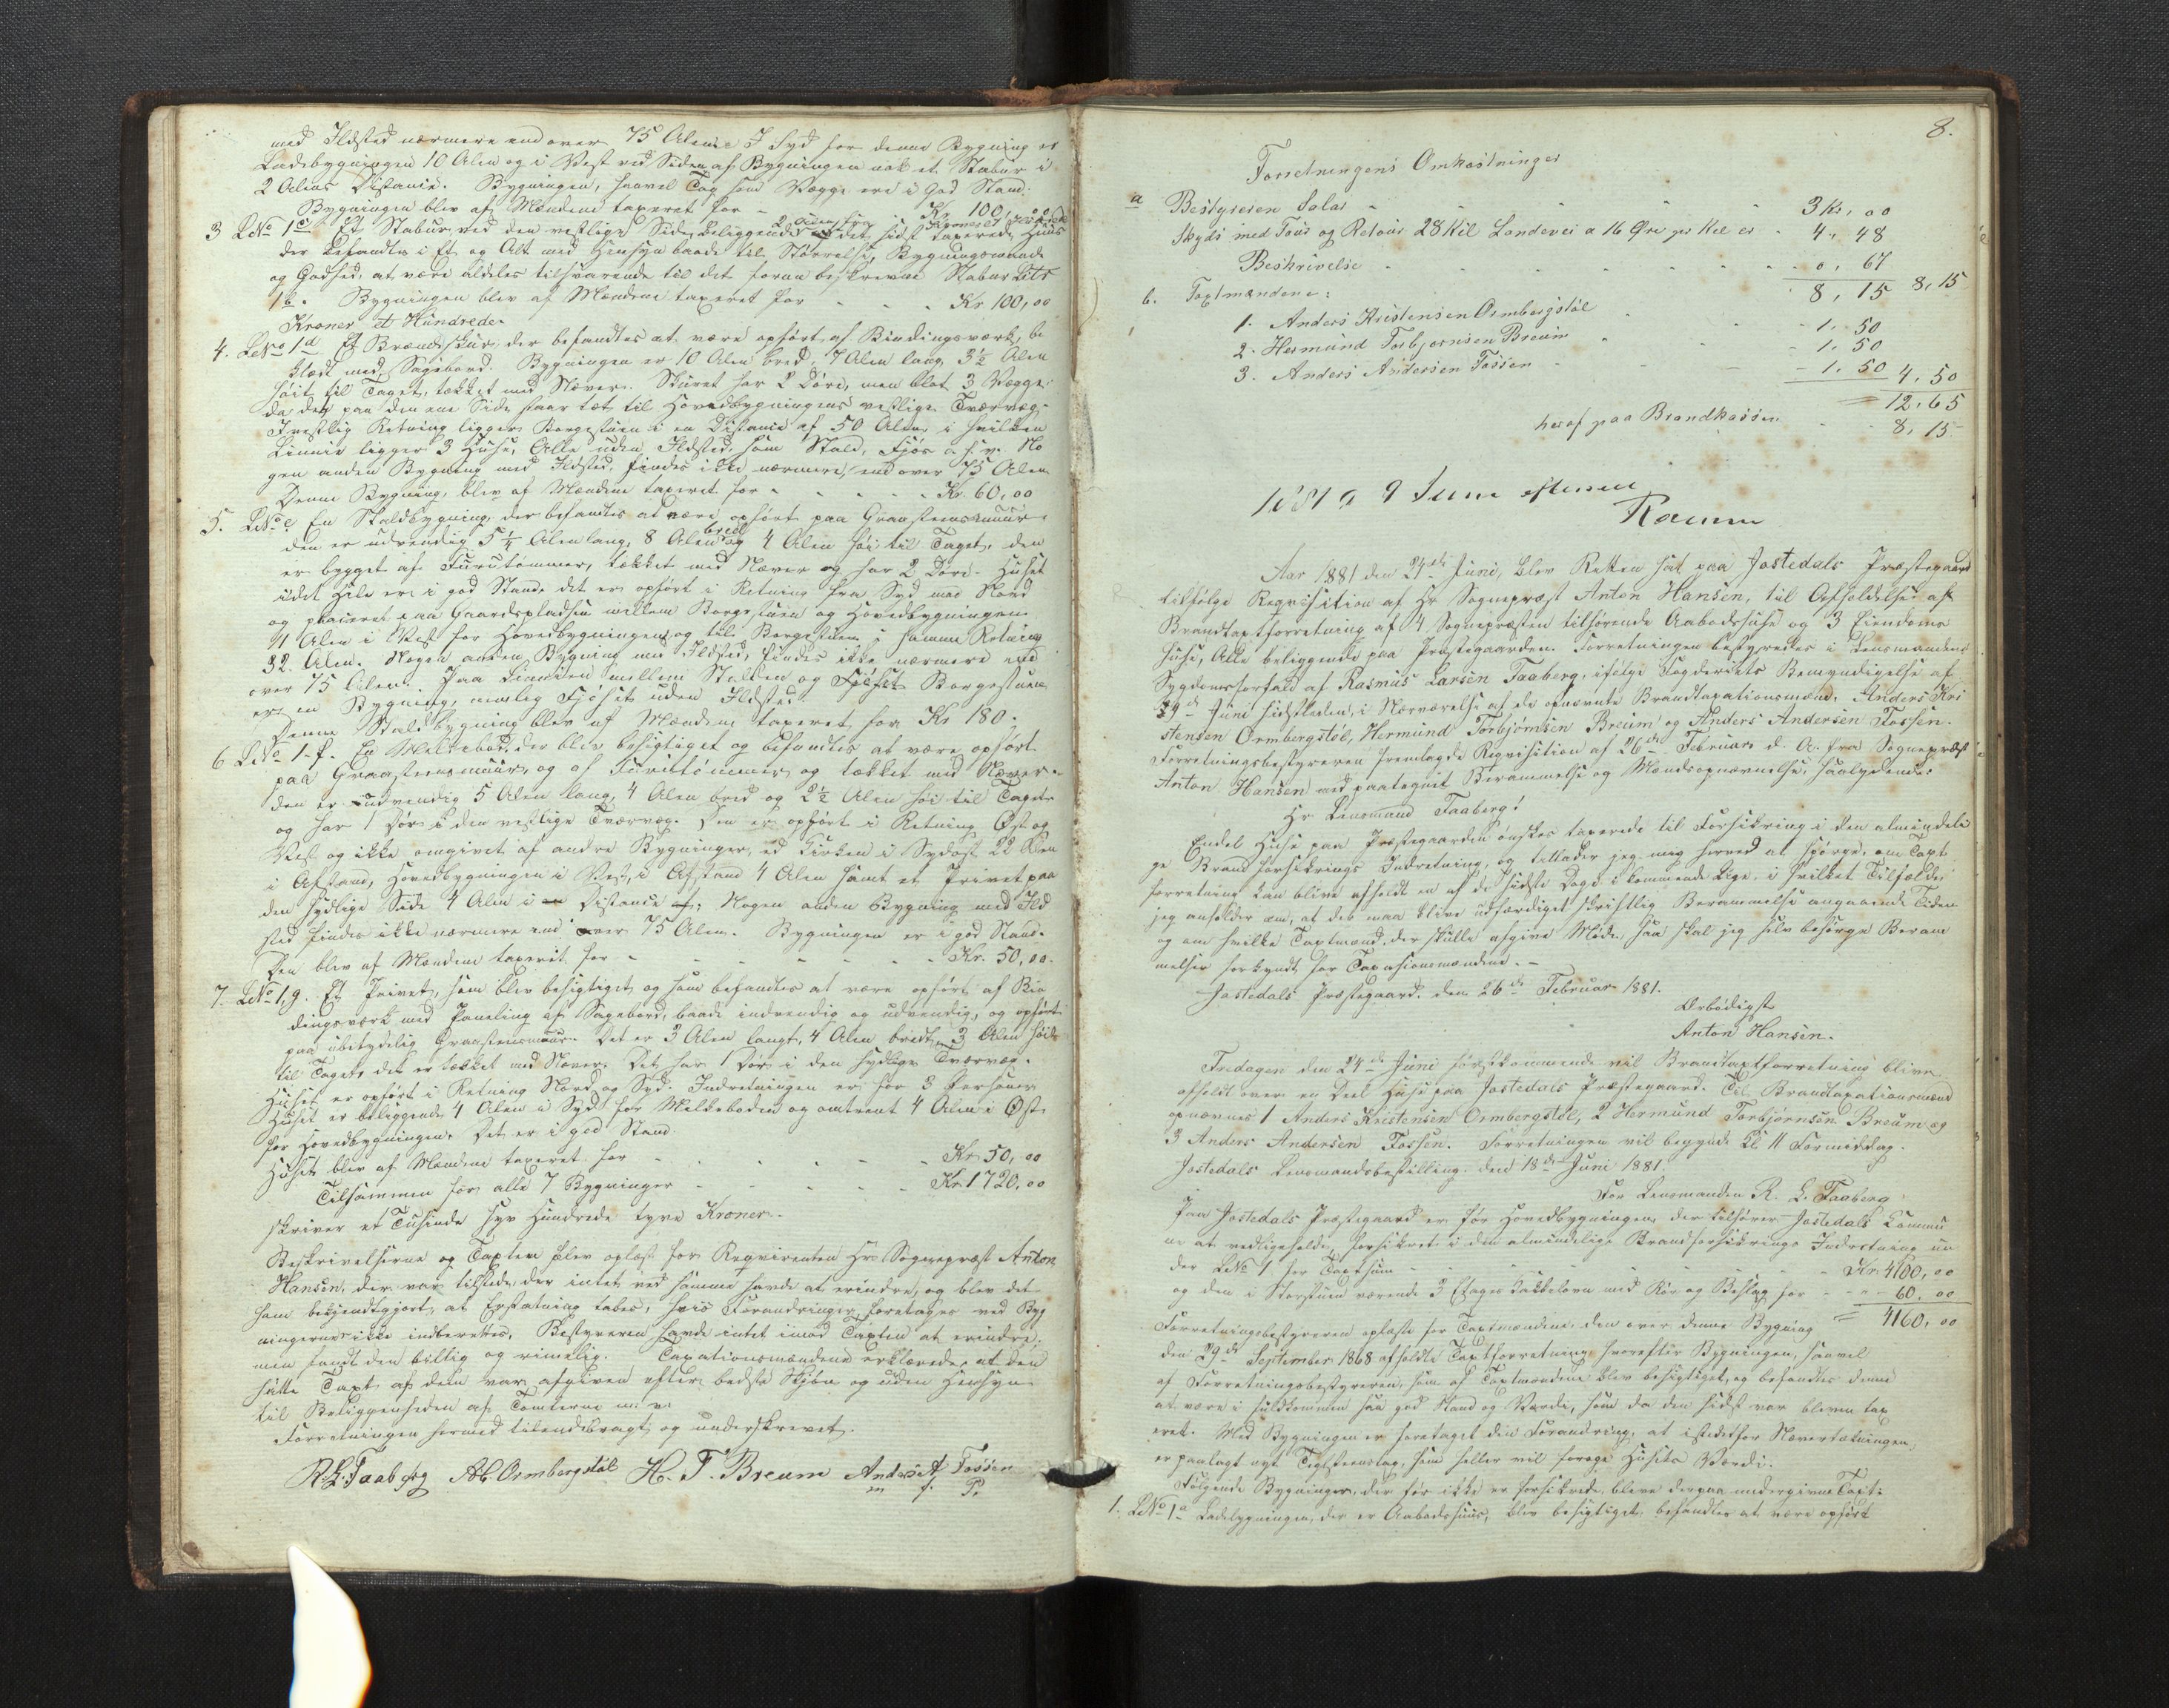 med Ildsted nærmere end over 75 Alen. I Syd for denne Bygning er
Ladebygningen 10 Alen og i Vest ved Siden af Bygningen nok et Stabur i
2 Alens Distance. Bygningen, saavel Tag som Vægge ere i god Stand.
Bygningen blev af Mændene taxeret for - Kr 100,00
3 LNo 1c Et Stabur ved den vestlige Side beliggende 2 Alen fra det sidst taxerede Huus
der befandtes i Et og Alt med Hensyn baade til Størrelse, Bygningsmaade
og Godhed, at være aldeles tilsvarende til det foran beskrevne Stabur Litr
1b. Bygningen blev af Mændene taxeret for - - - Kr 100,00
Kroner et Hundrede.
4. LNo 1d Et Brændeskur der befandtes at være opført af Bindingsværk, be
klædt med Sagebord. Bygningen er 10 Alen bred, 7 Alen lang 3½ Alen
høit til Taget, tækket med Næver. Skuret har 2 Døre, men blot 3 Vægge
da det paa den ene Side staar tæt til Hovedbygningens vestlige Tværvæg.
I vestlig Retning ligger Borgestuen i en Distance af 50 Alen i hvilken
Linnie ligger 3 Huse, Alle uden Ildsted, som Stald, Fjøs o. s. v. No
gen anden Bygning med Ildsted, findes ikke nærmere, end over 75 Alen
Denne Bygning blev af Mændene taxeret for - - - - Kr 60,00
5. LNo e En Staldbygning der befandtes at være opført paa Graasteensmuur.
den er udvendig 5¼ Alen lang, 8 Alen bred og 4 Alen høi til Taget, den
er bygget af Furutømmer, tækket med Næver og har 2 Døre. Huset
udet Hele er i god Stand, det er opført i Retning fra Syd mod Nord
og placeret paa Gaardspladsen mellem Borgestuen og Hovedbygningen
11 Alen i Vest for Hovedbygningen og til Borgestuen i samme Retning
32 Alen. Nogen anden Bygning med Ildsted, findes ikke nærmere end
over 75 Alen. Paa Linnien mellem Stalden og Fjøset Borgestuen
er en Bygning, nemlig Fjøset uden Ildsted.
Denne Staldbygning blev af Mændene taxeret for Kr 180.
6 LNo 1.f. En Melkebod, der blev besigtiget og befandtes at være opført
paa Graasteensmuur, og af Furutømmer og tækket med Næver.
den er indvendig 5 Alen lang, 4 Alen bred og 2½ Alen høi til Taget
og har 1 Dør i den vestlige Tværvæg. Den er opført i Retning Øst og
Vest og ikke omgivet af andre Bygninger, ed Kirken i Sydost 22 Alen
i Afstand, Hovedbygningen i Vest, i Afstand 4 Alen samt et Privet paa
den sydlige Side 4 Alen i Distance. Nogen anden Bygning med Ild
sted findes ikke nærmere end over 75 Alen. Bygningen er i god Stand.
Den blev af Mændene taxeret for - - - - - Kr. 50,00.
7. LNo 1,g. Et Privet, som blev besigtiget og som befandtes at være opført af Bin
dingsværk med Paneling af Sagebord, baade indvendig og udvendig, og opført
paa ubetydelig Graasteensmuur. Det er 3 Alen langt, 4 Alen bredt, 3 Alen høit
til Taget, det er tækket med Næver. Det har 1 Dør i den sydlige Tværvæg.
Huset er opført i Retning Nord og Syd. Indretningen er for 3 Personer
Huset er beliggende 4 Alen i Syd for Melkeboden og omtrent 4 Alen i Øst
for Hovedbygningen. Det er i god Stand.
Huset blev af Mændene taxeret for - - - - Kr. 50,00
Tilsammen for alle 7 Bygninger - - - - Kr. 1720,00
skriver et Tusinde syv Hundrede tyve Kroner.
Beskrivelserne og Taxten blev oplæst for Reqvirenten Hr. Sognepræst Anton
Hansen, der var tilstede, der intet ved samme havde at erindre, og blev det
ham bekjendtgjort, at Erstatning tabes, hvis Forandringer, foretages ved Byg
ningerne ikke indberettes. Bestyreren havde intet imod Taxten at erindre,
men fandt den billig og rimelig. Taxationsmændene erklærede, at den
satte Taxt af dem var afgiven efter bedste Skjøn og uden Hensyn
til Beliggenheden af Tomterne m. v.
Forretningen hermed tilendebragt og underskrevet.
R. L. Taaberg AK Ormbergstøl H. T. Breum Anders A Fossen
m. f. P.
8.
Forretningens Omkostninger
a Bestyreren Salar - - - 3 Kr, 00
Skyds med Tour og Retour 28 Kil Landevei a 16 Øre pr Kil er - 4, 48
Beskrivelse - - - - 0, 67
8, 15 8,15
b. Taxtmændene:
1. Anders Kristensen Ormbergstøl - - 1, 50
2. Hermund Torbjørnsen Breum - - 1, 50
3. Anders Andersen Fossen - - 1, 50 4,50
12,65
heraf paa Brandkassen - - 8, 15
1881 9 Juni
Aar 1881 den 24de Juni, blev Retten sat paa Jostedals Præstegaard
tilfølge Reqvisition af Hr Sognepræst Anton Hansen, til Afholdelse af
Brandtaxtforretning af 4 Sognepræsten tilhørende Aabodshuse og 3 Eiendoms
huse, Alle beliggende paa Præstegaarden. Forretningen bestyredes i Lensmandens
Sygdomsforfald af Rasmus Larsen Taaberg, ifølge Fogderiets Bemyndigelse af
Juni sidstleden, i Nærværelse af de opnævnte Brandtaxationsmænd. Anders Kri
stensen Ormbergstøl, Hermund Torbjørnsen Breum og Anders Andersen Fossen.
Forretningsbestyreren fremlagde Reqvisition af 26de Februar d. A. fra Sognepræst
Anton Hansen med paategnet Berammelse og Mandsopnævnelse, saalydende:
Hr. Lensmand Taaberg!
Endel Huse paa Præstegaarden ønskes taxerede til Forsikring i den almindeli
ge Brandforsikrings Indretning, og tillader jeg mig herved at spørge, om Taxt
forretning kan blive afholdt en af de sidste Dage i kommende Uge, i hvilket Tilfælde
jeg anholder om, at der maa blive udfærdiget skriftlig Berammelse angaaende Tiden
og om hvilke Taxtmænd, der skulle afgive Møde, saa skal jeg selv besørge Beram
melsen forkyndt for Taxationsmændene. -
Jostedals Præstegaard, den 26de Februar 1881.
Ærbødigst
Anton Hansen.
Fredagen den 24de Juni førstkommende vil Brandtaxtforretning blive
afholdt over en Deel Huse paa Jostedals Præstegaard. Til Brandtaxationsmænd
opnævnes 1 Anders Kristensen Ormbergstøl, 2 Hermund Torbjørnsen Breum og
3 Anders Andersen Fossen. Forretningen vil begynde Kl 11 Formiddag.
Jostedals Lensmandsbestilling, den 18de Juni 1881.
For Lensmanden R. L. Taaberg
Paa Jostedals Præstegaard er før Hovedbygningen, der tilhører Jostedals Kommu
ne at vedligeholde, forsikret i den almindelige Brandforsikrings Indretning un
der LNo 1 for Taxtsum - - - - - Kr. 4100,00
og den i Storstuen værende 3 Etages Kakkelovn med Rør og Beslag for - - - 60,00
Forretningsbestyreren oplæste for Taxtmændene, den over denne Bygning = 4160,00
den 29de September 1868 afholdte Taxtforretning hvorefter Bygningen, saavel
af Forretningsbestyreren, som af Taxtmændene blev besigtiget, og befandtes denne
at være i fuldkommen saa god Stand og Værdi, som da den sidst var bleven tax
eret. Med Bygningen er foretaget den Forandring, at istedetfor Nævertækningen,
er paalagt nyt Teglsteenstag, som heller vil forøge Husets Værdi.
Følgende Bygninger, der før ikke er forsikrede, bleve derpaa undergivne Taxt:
1. LNo 1a Ladebygningen, der er Aabodshuus, blev besigtiget, befandtes at være opført